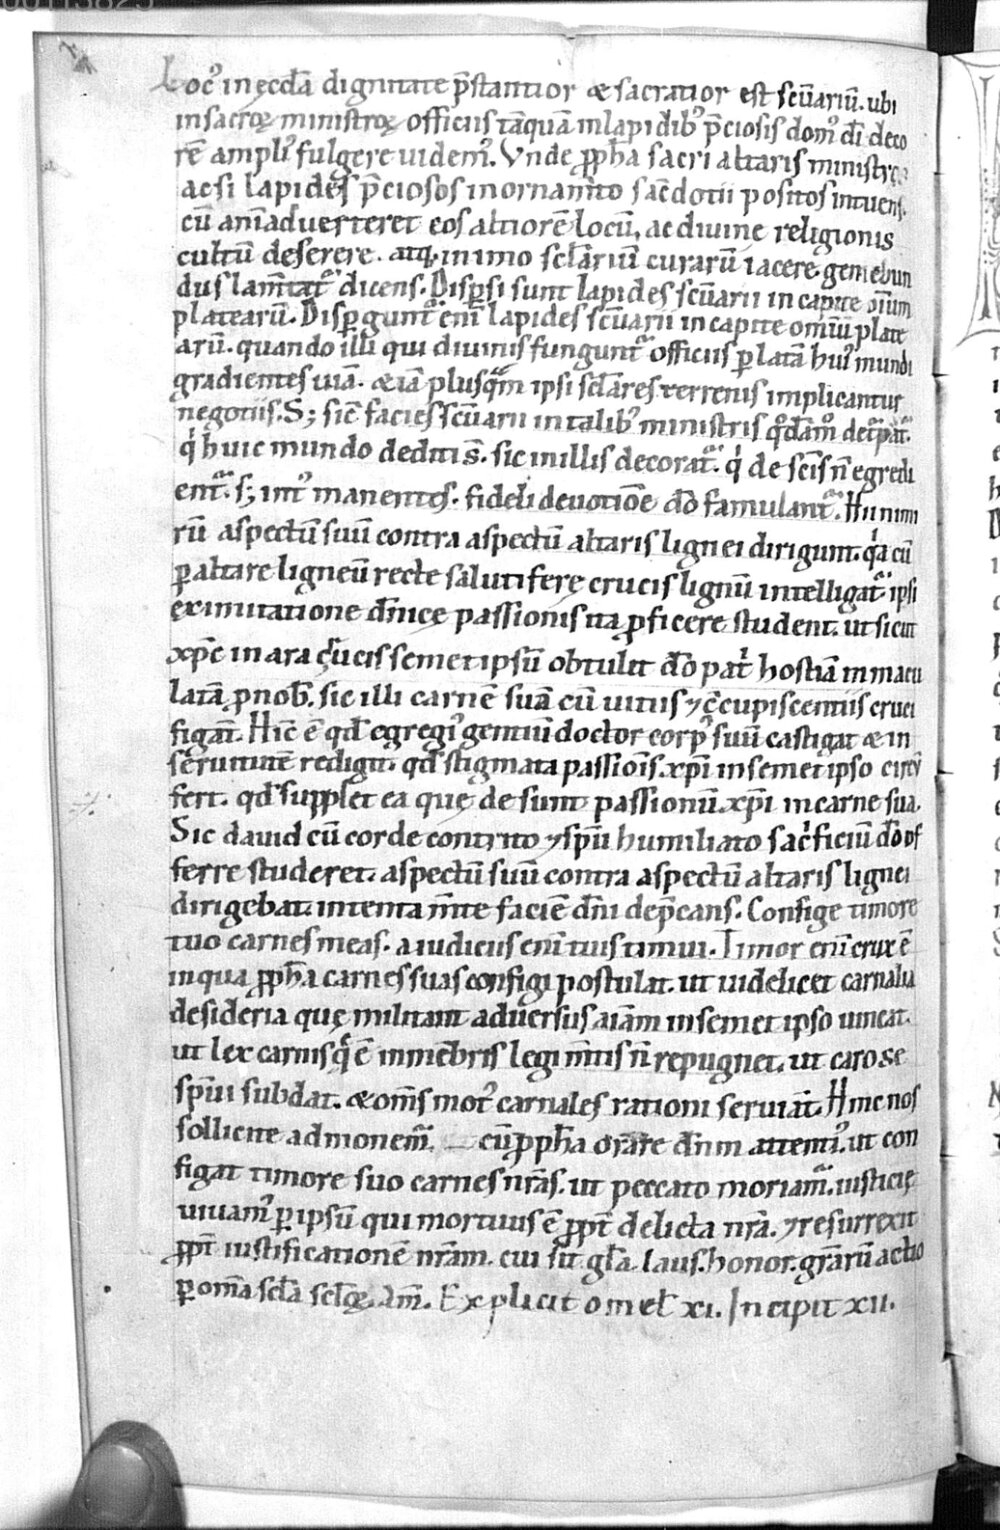 Loc᷒ in ęcclā dignitate p̄stantior & sacratior est scūariū. ubi
in sacroꝝ ministroꝝ officiis tāquā in lapidib᷒ p̄ciosis dom᷒ dī deco
rē ampli᷒ fulgere uidem᷒. Vnde ꝓph̄a sacri altaris ministros
ac si lapides p̄ciosos in ornam̄to sac̄dotii positos intuens.
cū anīaduerteret eos altiorē locū, ac diuinę religionis
cultū deserere. atq; in imo sclārium curarū iacere. gemebun
dus lam̄tat᷑ dicens. Disp̄si sunt lapides scūarii in capite oīium
platearū. Disꝑgunt᷑ enī lapides scūarii in capite omiū plate
arū. quando illi qui diuinis fungunt᷑ officiis ꝑ latā hui᷒ mundi
gradientes uiā. & iā plusquā ipsi sclāres terrenis implicantur
negotiis. S; sic̄ facies scūarii in talib᷒ ministris qdām᷒ det᷑pat᷑.
qͥ huic mundo dediti s̄. sic in illis decorat᷑. qͥ de scīs n̄ egredi
ent᷑. s; int᷒ manentes. fideli deuotiōe dō famulant᷑. Hii nimi
rū aspectū suū contra aspectū altaris lignei dirigunt. qͥa cū
ꝑ altare ligneū recte salutiferę crucis lignū intelligat᷑ ipsi
ex imitatione dn̄icę passionis ita ꝓficere student. ut sicut
xpc̄ in ara cͬucis semetipsū obtulit dō patͥ hostiā inmacu
latā ꝓ nob̄. sic illi carnē suā cū uitiis ⁊ c̄cupiscentiis cruci
figāt. Hic̄ ē qd̄ egregi᷒ gentiū doctor corp᷒ suū castigat & in
seruitutē redigit. qd̄ stigmata passiōis xpī in semetipso circū
fert. qd̄ supplet ea quę desunt passionū xpī in carne sua.
Sic dauid cū corde contrito ⁊ spū humiliato sacͥficiū dō of
ferre studeret. aspectū suū contra aspectū altaris lignei
dirigebat. intenta m̄te faciē dn̄i dep̄cans. Confige timore
tuo carnes meas. a iudiciis enī tuis timui. Timor enī crux ē
in qua ꝓph̄a carnes suas configi postulat. ut uidelicet carnalia
desideria quę militant aduersus aīam in semetipso uincat.
ut lex carnis quę ē in mēbris legi m̄tis n̄ repugnet. ut caro se
spūi subdat. & om̄s mot᷒ carnales rationi seruiāt. Hinc nos
sollicite admonem᷑ cū ꝓph̄a orare dn̄m attenti᷒. ut con
figat timore suo carnes nr̄as. ut peccato moriam᷑. iusticię
uiuam᷒ ꝑ ipsū qui mortuus ē ꝓpt̄ delicta nr̄a. ⁊ resurrexit
ꝓpt̄ iustificationē nr̄am. cui sit gl̄a. laus. honor. gr̄arū actio
ꝑ om̄a sclā sclōꝝ. Am̄. Explicit omel̄ xi. Incipit xii.